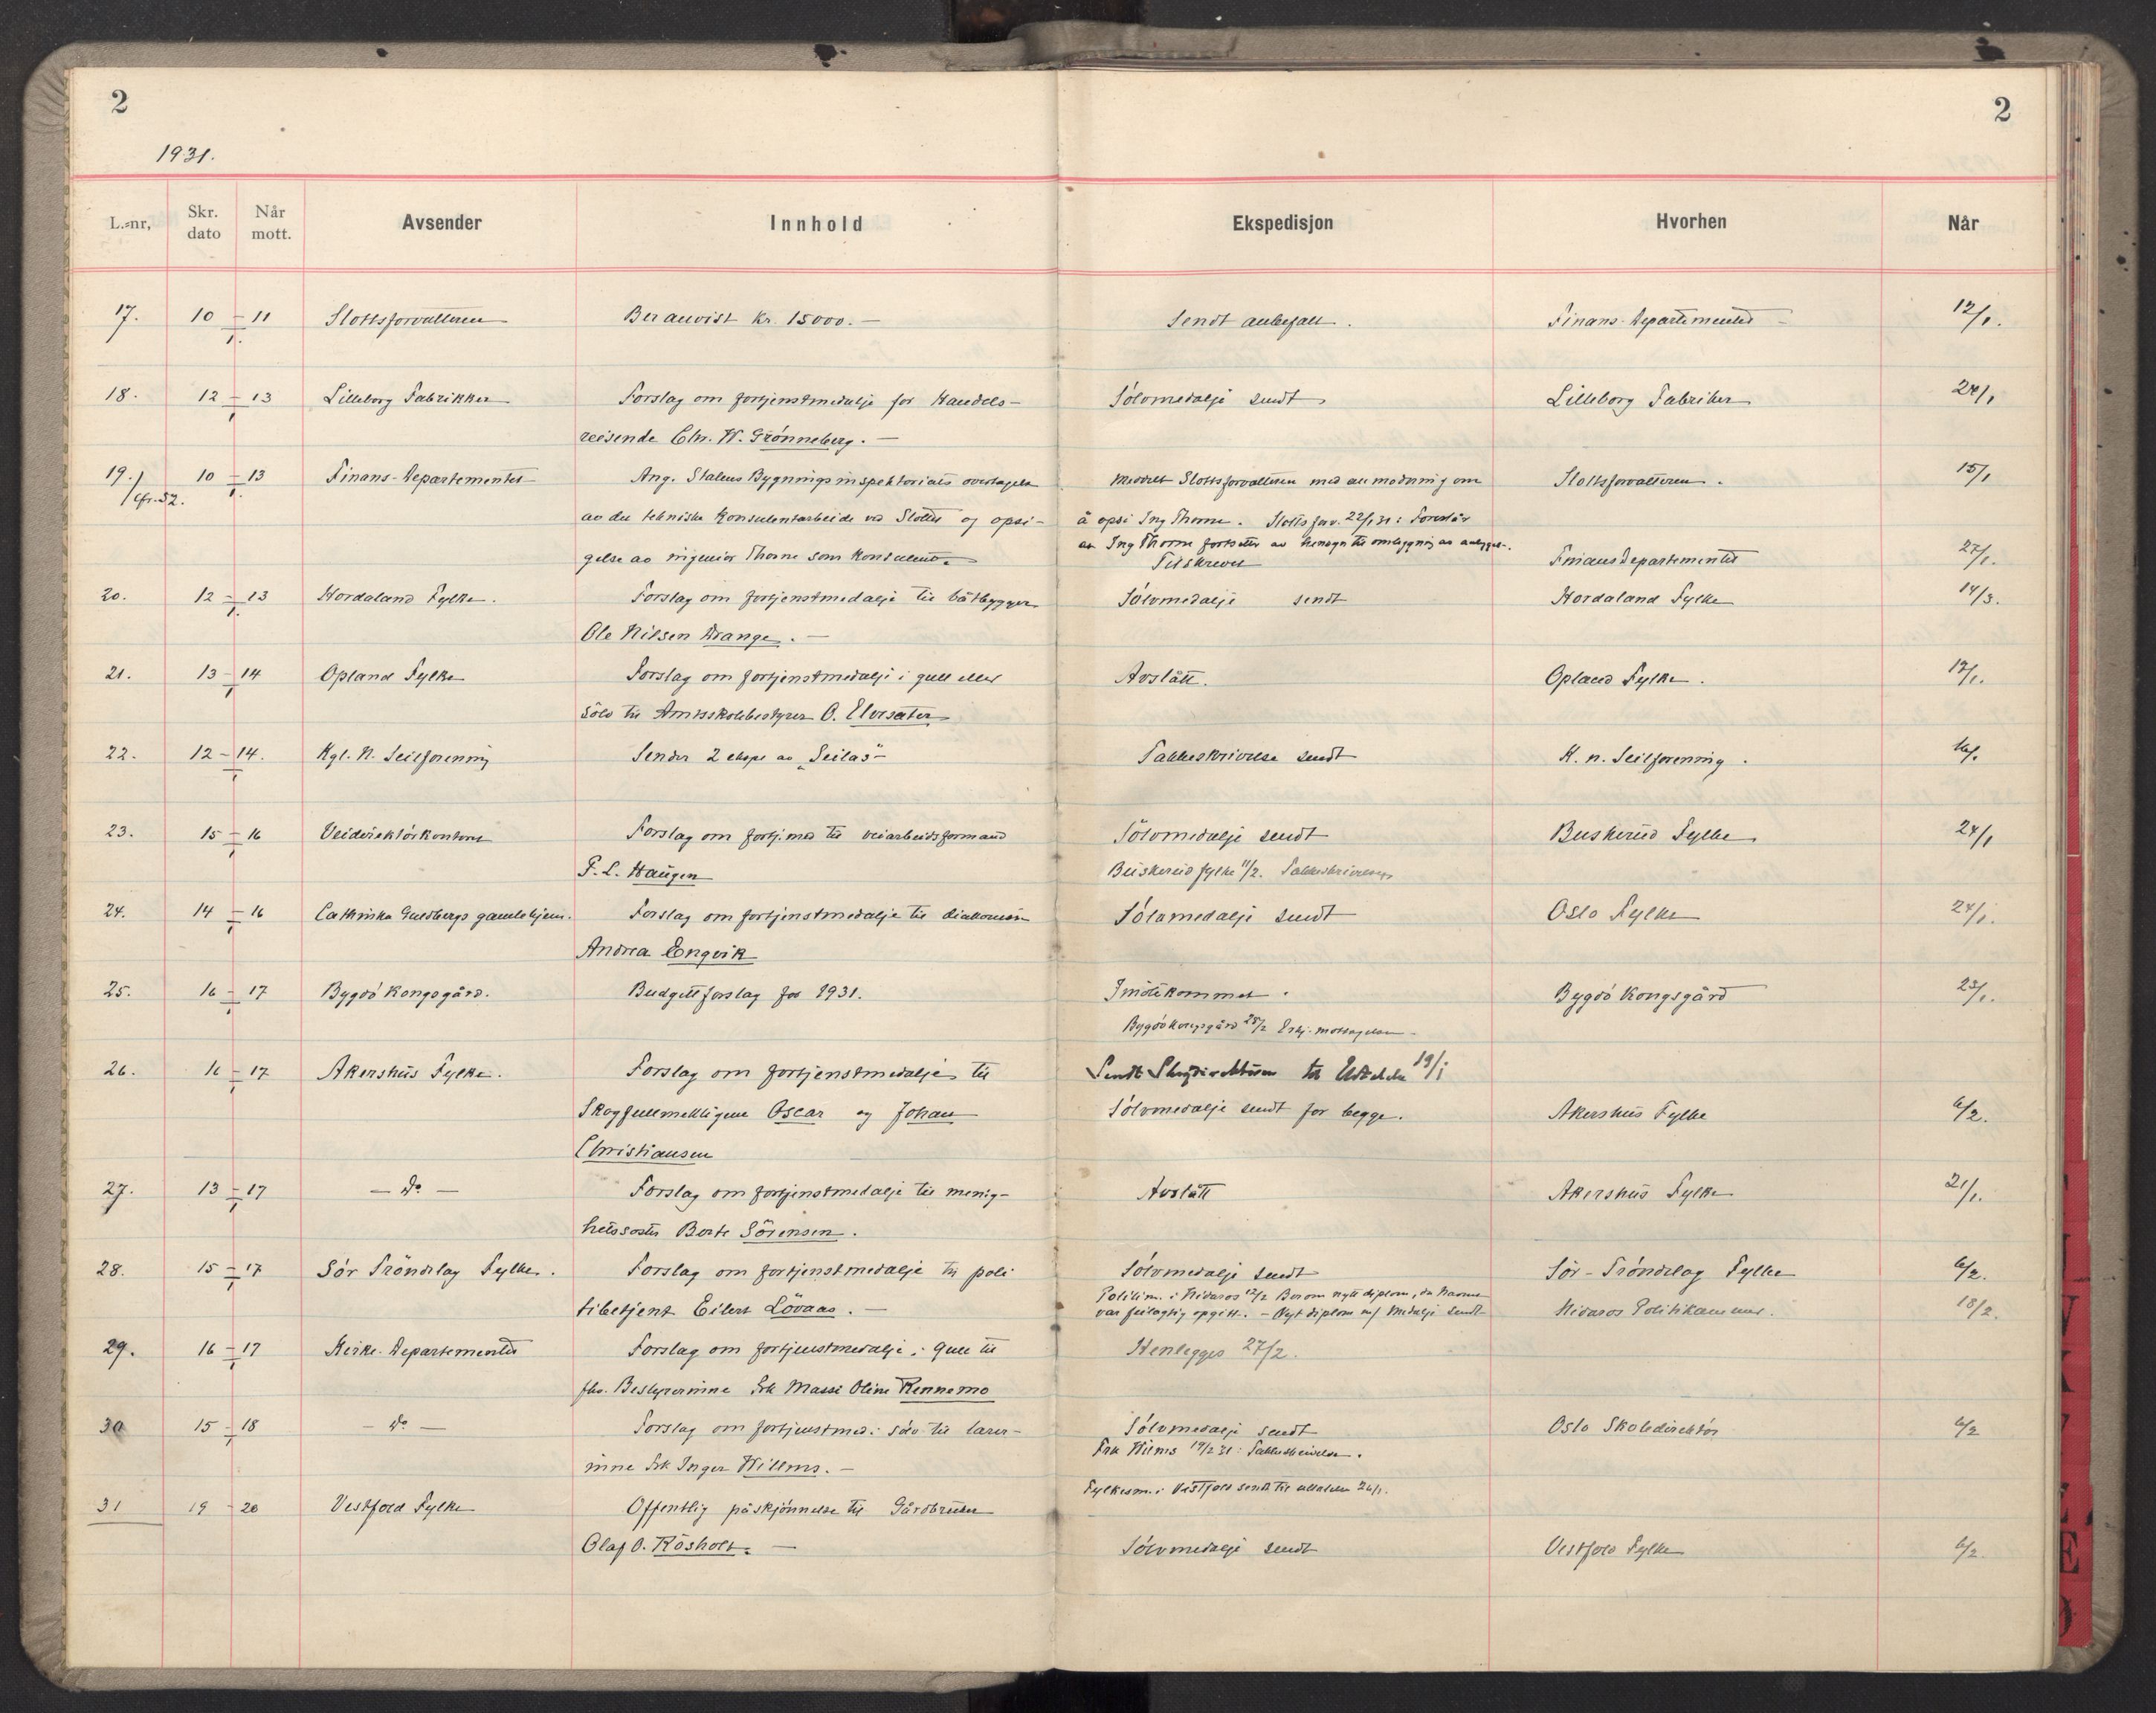 2
2
1931.
L.-nr, Skr. dato Når mott. Avsender Innhold Ekspedisjon Hvorhen Når
17. 10 – 11 / 1. Slottsforvalteren Ber anvist kr. 15000.— Sendt anbefalt. Finans-Departementet 12/1.
18. 12 – 13 / 1 Lilleborg Fabrikker Forslag om fortjenstmedalje for Handels- Sölvmedalje sendt Lilleborg Fabriker 24/1
reisende Chr. W. Grönneberg.—
19. 10 – 13 / 1. Finans-Departementet Ang. Statens Bygningsinspektoriats overtagelse Meddelt Slottsforvalteren med anmodning om Slottsforvalteren. 15/1
cfr. 52. av det tekniske konsulentarbeide ved Slottet og opsi- å opsi Ing Thorne. Slottsforv. 22/1 31: Foreslår
at Ing Thorne fortsetter av hensyn til ombygning av
gelse av ingeniör Thorne som konsulent. Tilskrevet Finansdepartementet 27/1.
20. 12 – 13 / 1. Hordaland Fylke. Forslag om fortjenstmedalje til båtbygger Sölvmedalje sendt Hordaland Fylke 14/3.
Ole Nilsen Drange.—
21. 13 – 14 / 1 Opland Fylke Forslag om fortjenstmedalje i gull eller Avslått. Opland Fylke. 17/1.
sölv til Amtsskolebestyrer O. Elvesæter
22. 12 – 14. / 1 Kgl. N. Seilforening Sender 2 eksp av „Seilas" Takkeskrivelse sendt K. n. Seilforening. 16/1.
23. 15 – 16 / 1 Veidirektörkontoret Forslag om fortj.med til veiarbeidsformand Sölvmedalje sendt Buskerud Fylke 24/1
F. L. Haugen Buskerud fylke 11/2. Takkeskrivelse
24. 14 – 16 / 1 Cathinka Guldbergs gamlehjem. Forslag om fortjenstmedalje til diakonisse Sölvmedalje sendt Oslo Fylke 24/1.
Andrea Engvik
25. 16 – 17 / 1 Bygdö Kongsgård. Budgettforslag for 1931. Imötekommet. Bygdö Kongsgård 23/1.
Bygdö Kongsgård 25/2 Erkj. mottagelsen.
26. 16 – 17 / 1 Akershus Fylke. Forslag om fortjenstmedalje til Sendt Skogdirektören til Uttalelse 19/1
Skogfullmektigene Oscar og Johan Sölvmedalje sendt for begge. Akershus Fylke 6/2.
Christiansen
27. 13 – 17 / 1 — do — Forslag om fortjenstmedalje til menig- Avslått Akershus Fylke 21/1.
hetssöster Berte Sörensen.
28. 15 – 17 / 1 Sör Tröndelag Fylke. Forslag om fortjenstmedalje til poli Sölvmedalje sendt Sör-Tröndelag Fylke 6/2.
tibetjent Eilert Lövaas.— Politim. i Nidaros 12/2 Ber om nytt diplom, da Navnet
var feilagtig opgitt. – Nyt diplom m/ Medalje sendt Nidaros Politikammer. 18/2.
29. 16 – 17 / 1 Kirke-Departementet Forslag om fortjenstmedalje i gull til Henlegges 27/2.
fhv. Bestyrerinne Frk Massi Oline Rennemo
30 15 – 18 / 1 — do — Forslag om fortjenstmed. i sölv til lærer- Sölvmedalje sendt Oslo Skoledirektör 6/2
inne Frk Inger Willms.— Frk Wilms 19/2 31: Takkeskrivelse.
31 19 – 20 Vestfold Fylke Offentlig påskjönnelse til Gårdbruker Fylkesm. i Vestfold sendt til uttalelse 26/1.
Olaf O. Rösholt.— Sölvmedalje sendt Vestfold Fylke 6/2.